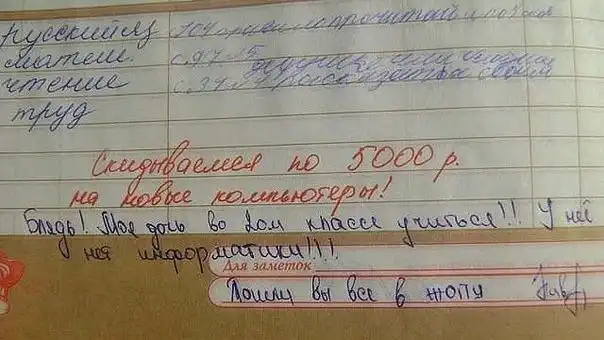 русский яз 104 правило прочитать и
матем. с. 97 №5
чтение с. 34
труд
Скидываемся по 5000 р.
на новые компьютеры!
Блядь! Моя дочь во 2ом классе учиться!!! У неё
нет информатики!!!!
Для заметок
Пошли вы все в жопу